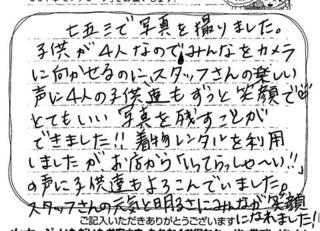 七五三で写真を撮りました。
子供が4人なのでみんなをカメラ
に向かせるのに、スタッフさんの楽しい
声に4人の子供達もずっと笑顔で
とてもいい写真を残すことが
できました!!着物レンタルを利用
しましたがお店から「いってらっしゃ〜い!!」
の声に子供達もよろこんでいました。
スタッフさんの元気と明るさにみんなが笑顔
になれました!!
ご記入いただきありがとうございます